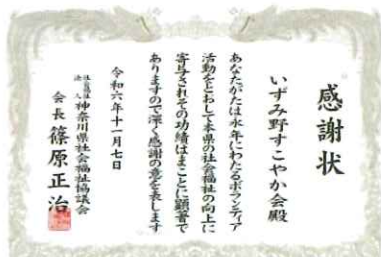 感謝状
いずみ野すこやか会殿
あなたがたは永年にわたるボランティア
活動をとおして本県の社会福祉の向上に
寄与されその功績はまことに顕著で
ありますので深く感謝の意を表します
令和六年十一月七日
社会福祉法人神奈川県社会福祉協議会
会長篠原正治